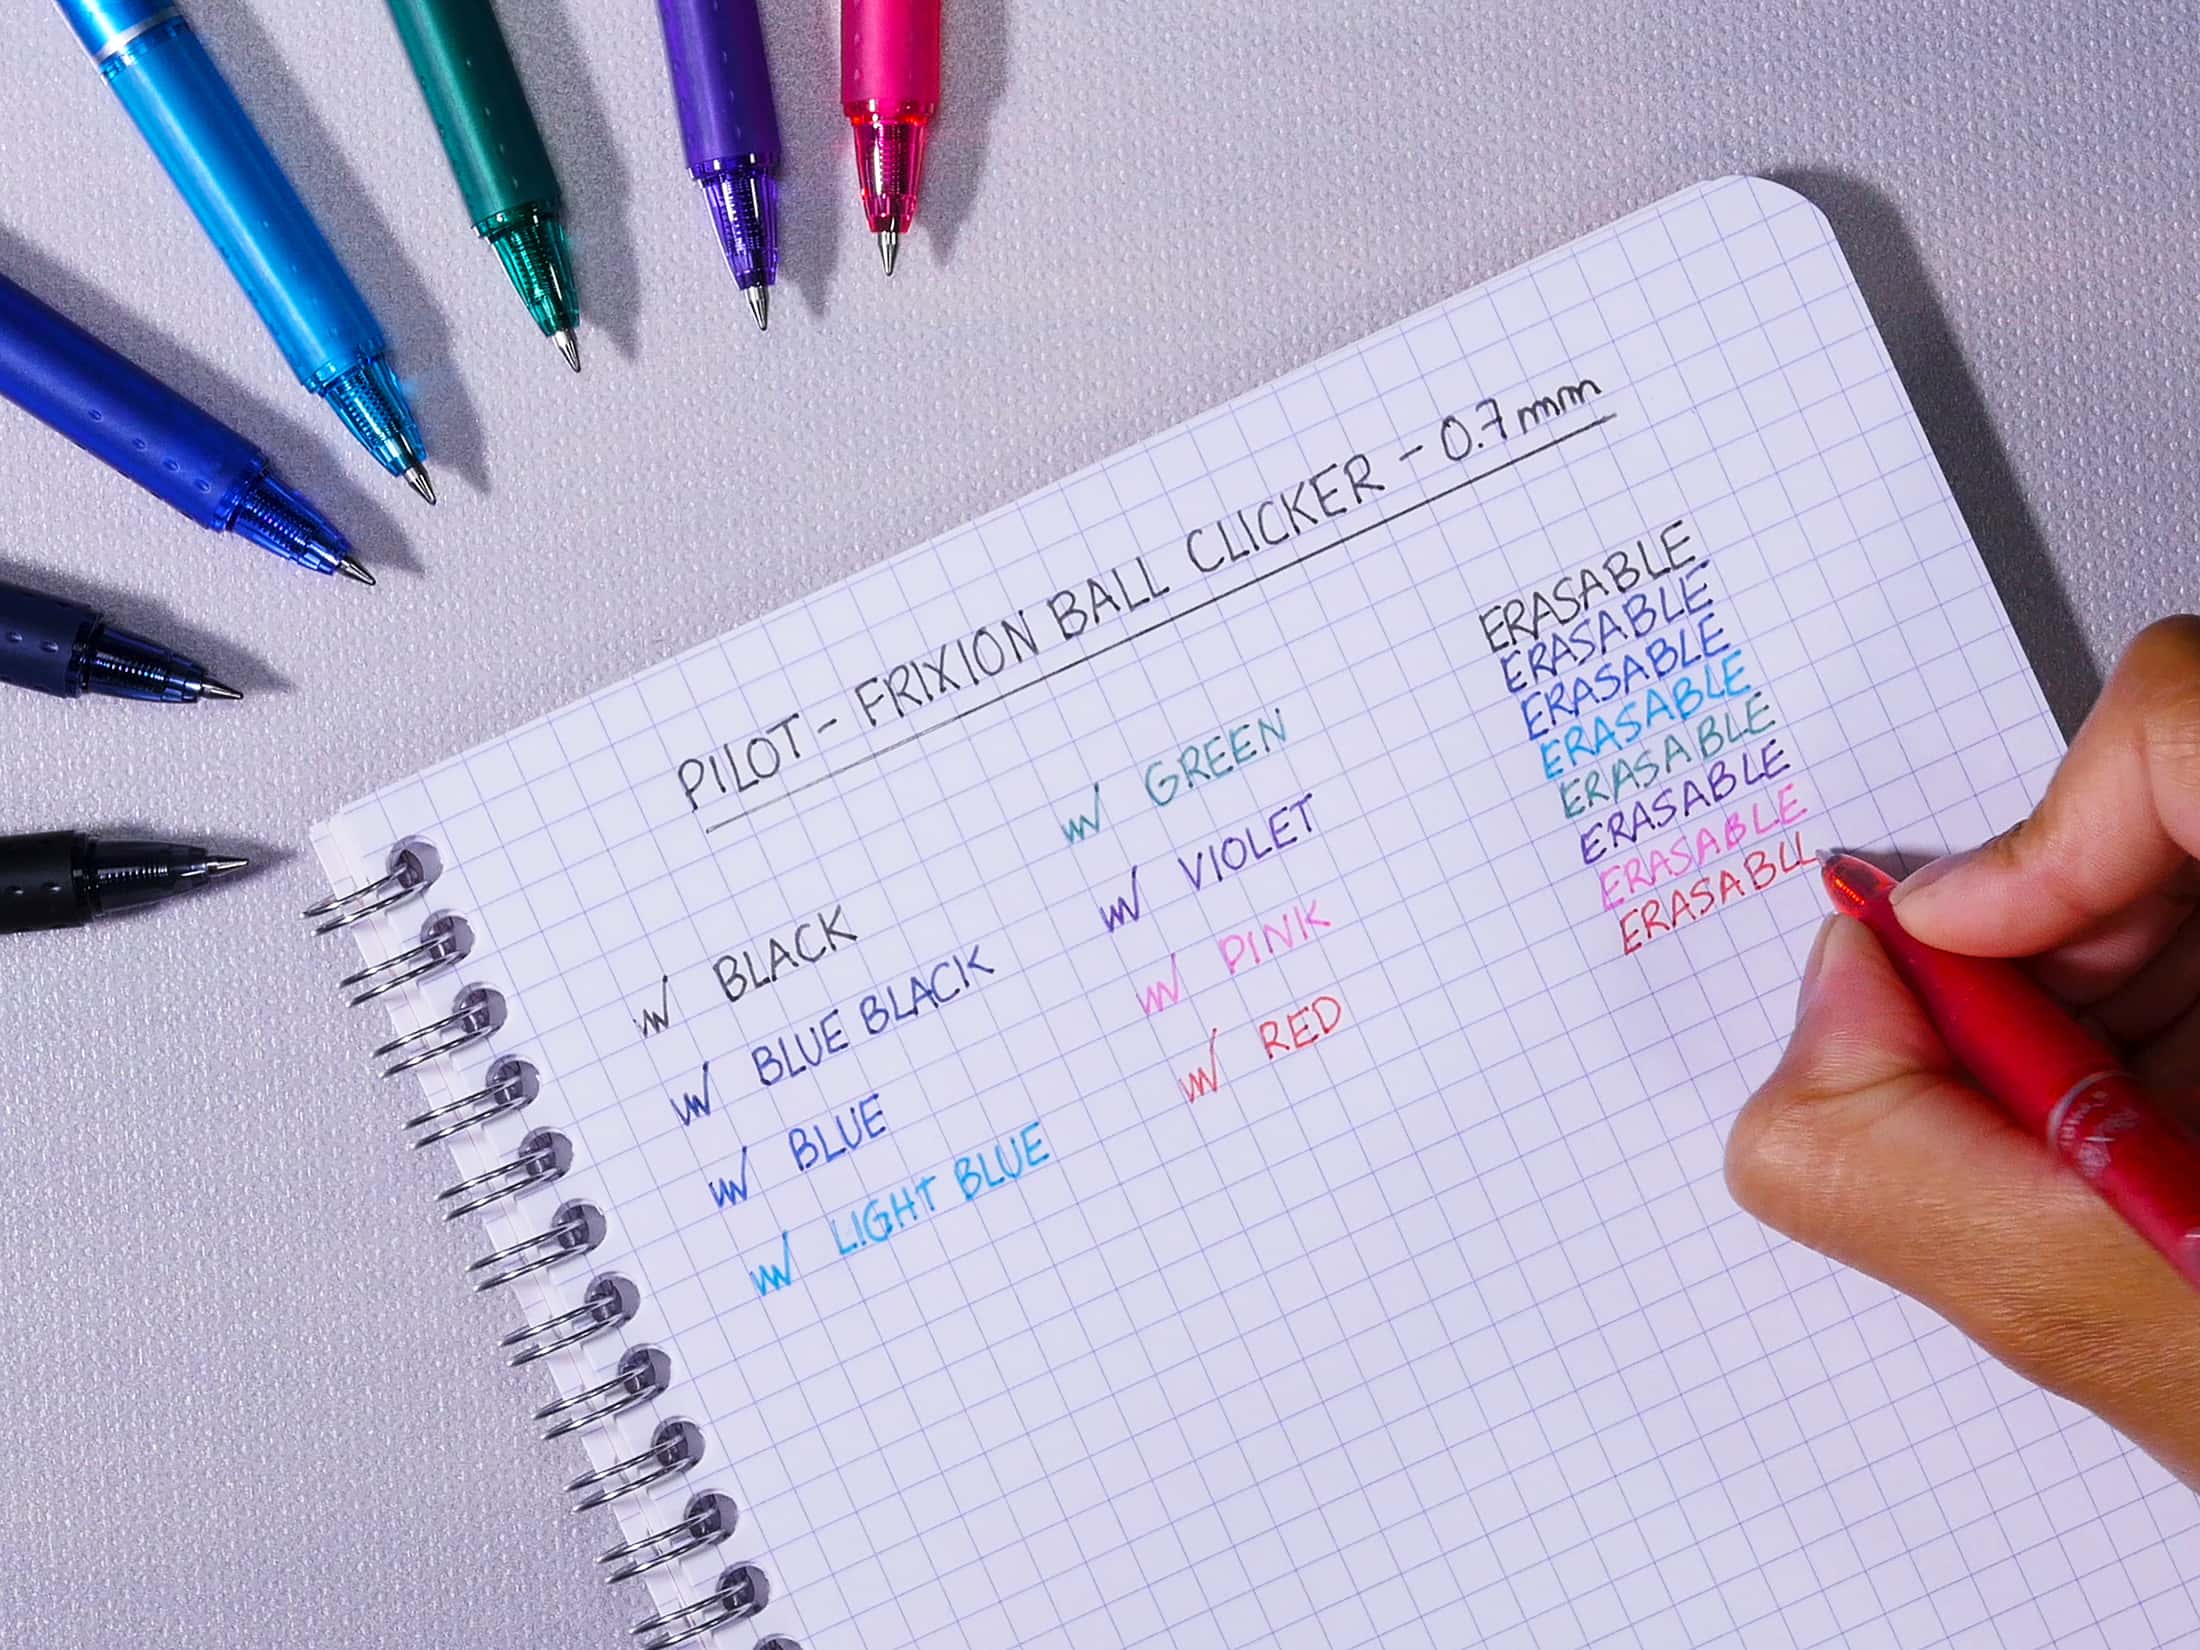 PILOT - FRIXION BALL CLICKER - 0.7mm
BLACK
BLUE BLACK
BLUE
LIGHT BLUE
GREEN
VIOLET
PINK
RED
ERASABLE
ERASABLE
ERASABLE
ERASABLE
ERASABLE
ERASABLE
ERASABLE
ERASABLL